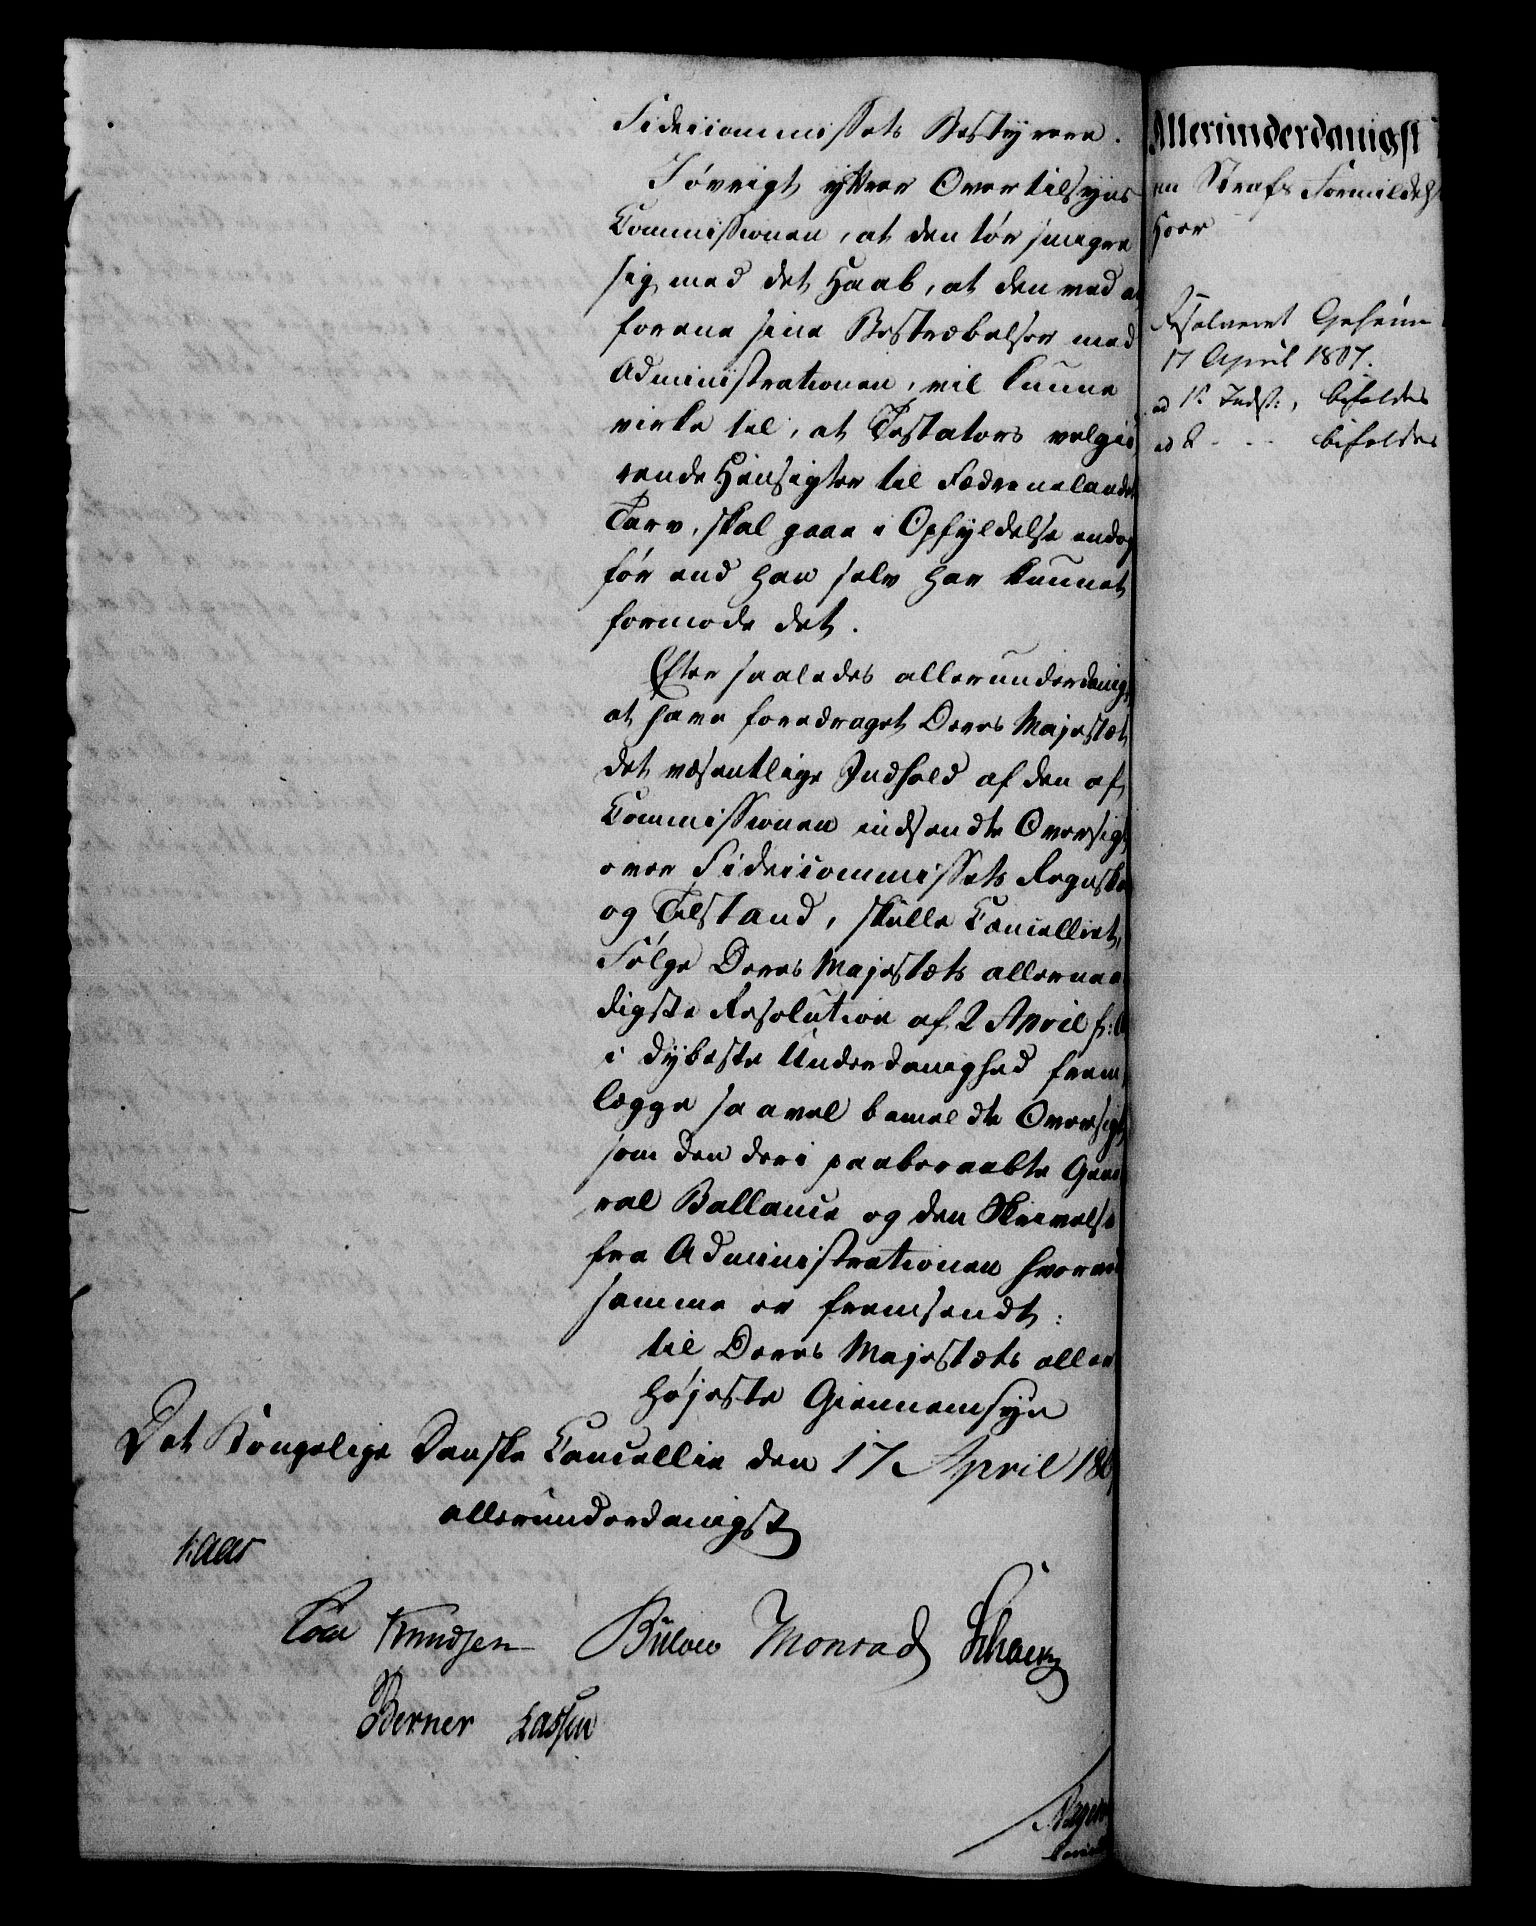 Fideicommissets Bestyrere.
Iøvrigt yttrer Overtilsyns
Commissionen, at den tør smigre
sig med det Haab, at den ved at
forene sine Bestræbelser med
Administrationen, vil kunne
virke til, at Testators velgiø
rende Hensigter til Fædrenelandets
Tarv, skal gaae i Opfyldelse endog
før end han selv har kunnet
formode det.
Efter saaledes allerunderdanigst
at have foredraget Deres Majestæt
det væsentlige Indhold af den af
Commissionen indsendte Oversigt
over Fideicommissets Regnskab
og Tilstand, skulle Cancelliet,
Følge Deres Majestæts allernaa
digste Resolution af 2 April f: A
i dybeste Underdanighed frem
lægge saavel bemeldte Oversigt
som den deri paaberaabte Gene
ral Ballance og den Skrivelse
fra Administrationen hvorved
samme er fremsendt:
til Deres Majestæts aller
højeste Giennemsyn
Det Kongelige Danske Cancellie den 17 April 180
allerunderdanigst
Kaas
Cold Knudsen Bülow Monrad Schow
Berner Lassen
Allerunderdanigst
en Strafs Formildelse
Hoer
Resolveret Geheim
17 April 1807.
ad 1. Indst:, bifaldes
ad 2 - - - bifaldes